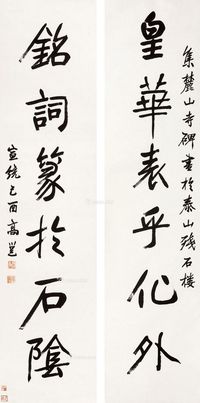 集麓山寺碑書於泰山殘石樓
皇華表乎化外
銘詞篆於石陰
宣統己酉高邕